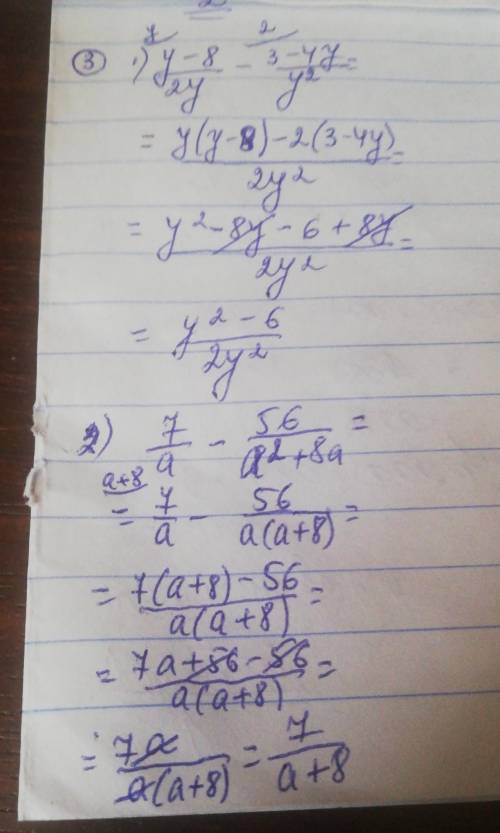 ③ 1) (y-8)/(2y) - (3-4y)/(y²) =
= (y(y-8)-2(3-4y))/(2y²) =
= (y²-8y-6+8y)/(2y²) =
= (y²-6)/(2y²)
2) 7/a - 56/(a²+8a) =
a+8
= 7/a - 56/(a(a+8)) =
= (7(a+8)-56)/(a(a+8)) =
= (7a+56-56)/(a(a+8)) =
= 7a/(a(a+8)) = 7/(a+8)